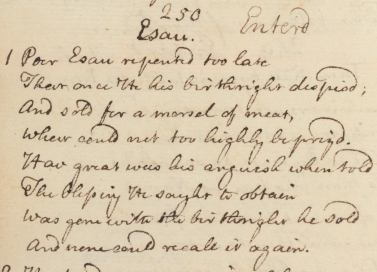 250
Esau. Enterd
1 Poor Esau repented too late
That once He his birthright despised;
And sold for a morsel of meat,
What could not too highly be prized.
How great was his anguish when told
The blessing He sought to obtain
Was gone with the birthright he sold
And none could recall it again.